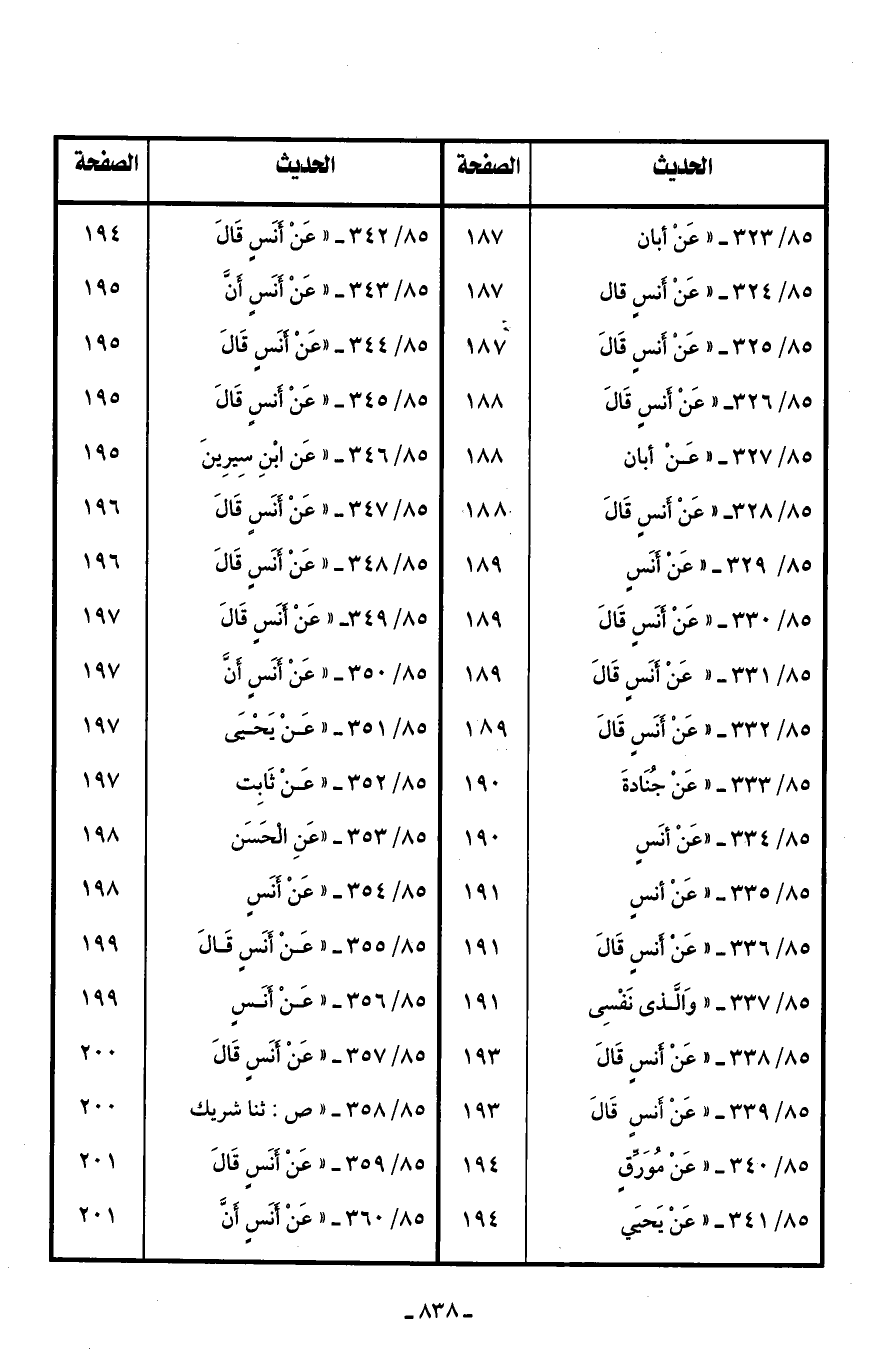 الحديث الصفحة الحديث الصفحة
٨٥/ ٣٢٣ ـ « عَنْ أبان ١٨٧ ٨٥/ ٣٤٢ ـ « عَنْ أَنَسٍ قَالَ ١٩٤
٨٥/ ٣٢٤ ـ « عَنْ أَنسٍ قال ١٨٧ ٨٥/ ٣٤٣ ـ « عَنْ أَنَسٍ أَنَّ ١٩٥
٨٥/ ٣٢٥ ـ « عَنْ أَنسٍ قَالَ ١٨٧ ٨٥/ ٣٤٤ ـ «عَنْ أَنَسٍ قَالَ ١٩٥
٨٥/ ٣٢٦ـ « عَنْ أَنسٍ قَالَ ١٨٨ ٨٥/ ٣٤٥ ـ « عَنْ أَنسٍ قَالَ ١٩٥
٨٥/ ٣٢٧ ـ « عَـنْ أبان ١٨٨ ٨٥/ ٣٤٦ ـ « عَن ابْنِ سِيرِينَ ١٩٥
٨٥/ ٣٢٨ـ « عَنْ أَنسٍ قَالَ ١٨٨ ٨٥/ ٣٤٧ ـ « عَنْ أَنَسٍ قَالَ ١٩٦
٨٥/ ٣٢٩ ـ « عَنْ أَنَسٍ ١٨٩ ٨٥/ ٣٤٨ ـ « عَنْ أَنَسٍ قَالَ ١٩٦
٨٥/ ٣٣٠ ـ « عَنْ أَنَسٍ قَالَ ١٨٩ ٨٥/ ٣٤٩ـ « عَنْ أَنَسٍ قَالَ ١٩٧
٨٥/ ٣٣١ ـ « عَنْ أَنَسٍ قَالَ ١٨٩ ٨٥/ ٣٥٠ ـ « عَنْ أَنَسٍ أَنَّ ١٩٧
٨٥/ ٣٣٢ ـ « عَنْ أَنَسٍ قَالَ ١٨٩ ٨٥/ ٣٥١ ـ « عَـنْ يَحْـيَى ١٩٧
٨٥/ ٣٣٣ ـ « عَنْ جُنَادةَ ١٩٠ ٨٥/ ٣٥٢ ـ « عَـنْ ثَابِت ١٩٧
٨٥/ ٣٣٤ ـ «عَنْ أنَسٍ ١٩٠ ٨٥/ ٣٥٣ ـ «عَنِ الْحَسَن ١٩٨
٨٥/ ٣٣٥ ـ « عَنْ أنسٍ ١٩١ ٨٥/ ٣٥٤ ـ « عَنْ أَنَسٍ ١٩٨
٨٥/ ٣٣٦ ـ « عَنْ أَنسٍ قَالَ ١٩١ ٨٥/ ٣٥٥ ـ « عَـنْ أَنَسٍ قَـالَ ١٩٩
٨٥/ ٣٣٧ ـ « وَالَّـذى نَفْسِى ١٩١ ٨٥/ ٣٥٦ ـ « عَـنْ أَنَـسٍ ١٩٩
٨٥/ ٣٣٨ ـ « عَنْ أَنسٍ قَالَ ١٩٣ ٨٥/ ٣٥٧ ـ « عَنْ أَنَسٍ قَالَ ٢٠٠
٨٥/ ٣٣٩ ـ « عَنْ أَنسٍ قَالَ ١٩٣ ٨٥/ ٣٥٨ ـ « ص : ثنا شريك ٢٠٠
٨٥/ ٣٤٠ ـ « عَنْ مُوَرِّقٍ ١٩٤ ٨٥/ ٣٥٩ ـ « عَنْ أَنَسٍ قَالَ ٢٠١
٨٥/ ٣٤١ ـ « عَنْ يَحيَي ١٩٤ ٨٥/ ٣٦٠ ـ « عَنْ أَنَسٍ أَنَّ ٢٠١
ـ ٨٣٨ ـ